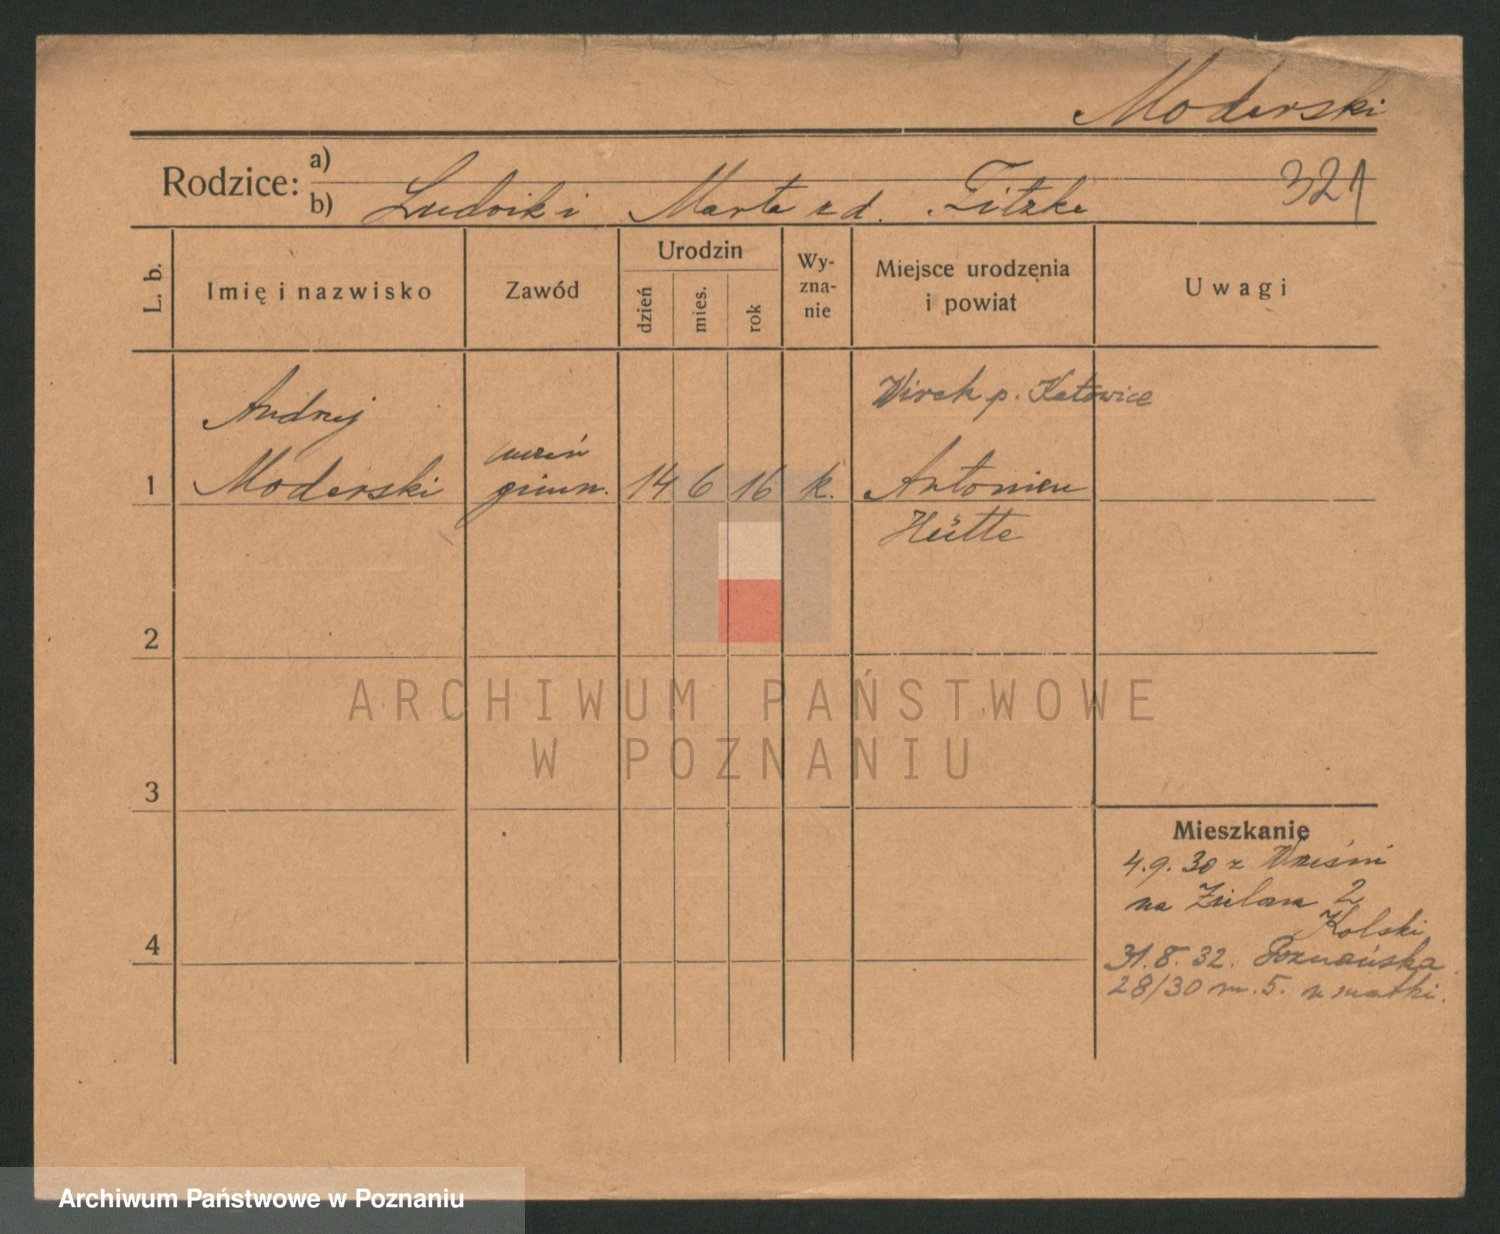 Moderski
Rodzice: a)
b) Ludwik i Marta z d. Titzke
321
L. b.
Imię i nazwisko
Zawód
Urodzin
dzień
mies.
rok
Wy-
zna-
nie
Miejsce urodzenia
i powiat
Uwagi
Wirek p. Katowice
Andrzej
uczeń
1 Moderski gimn. 14 6 16 k. Antonien
Hütte
2
ARCHIWUM PAŃSTWOWE
W POZNANIU
3
Mieszkanie
4.9.30 z Wrześni
na 2
Kolski
4
31.8.32. Poznańska
28/30 m. 5. u matki.
Archiwum Państwowe w Poznaniu